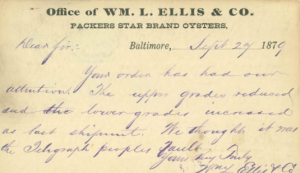 Office of WM. L. ELLIS & CO.
PACKERS STAR BRAND OYSTERS,
Dear Sir:- Baltimore, Sept 29 1879
Your order has had our
attention. The upper grades reduced
and the lower grades increased
as last shipment. We thought it was
the Telegraph peoples fault.
Yours very Truly
Wm L Ellis & Co